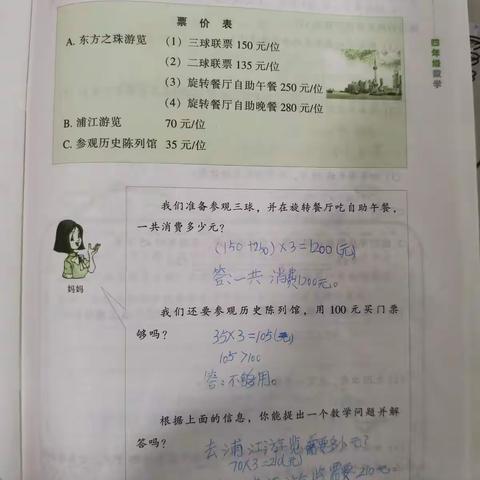 票 价 表
A. 东方之珠游览 (1) 三球联票 150 元/位
(2) 二球联票 135 元/位
(3) 旋转餐厅自助午餐 250 元/位
(4) 旋转餐厅自助晚餐 280 元/位
B. 浦江游览 70 元/位
C. 参观历史陈列馆 35 元/位
四年级数学
我们准备参观三球，并在旋转餐厅吃自助午餐，
一共消费多少元？
(150+250)×3=1200(元)
答:一共消费1200元。
妈妈
我们还要参观历史陈列馆，用 100 元买门票
够吗？
35×3=105(元)
105>100
答:不够用。
根据上面的信息，你能提出一个数学问题并解
答吗？
去浦江游览需要多少元?
70×3=210(元)
需要210元